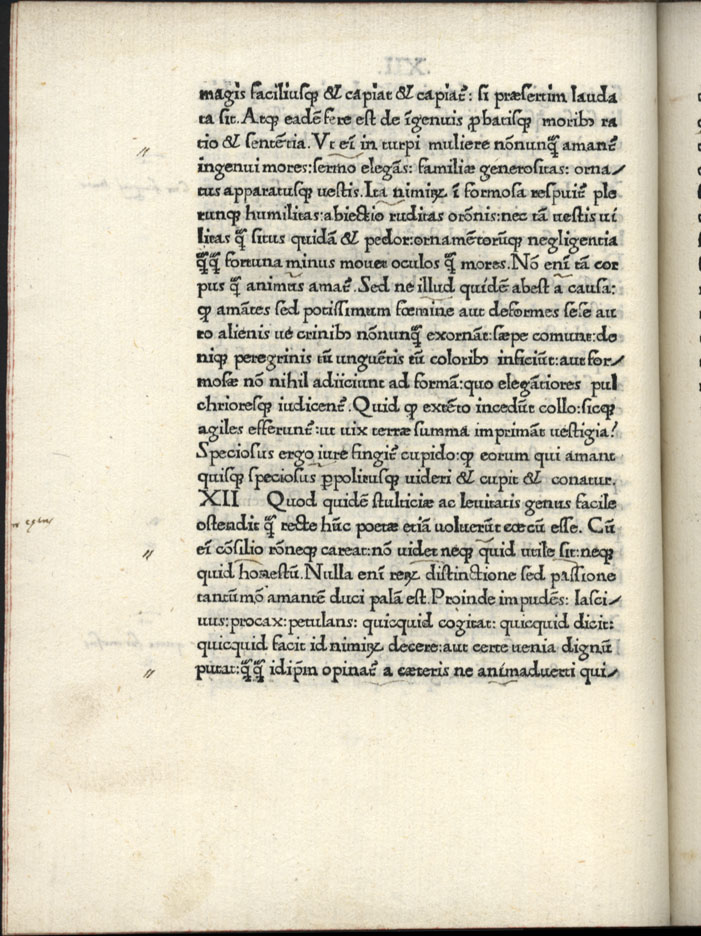 magis faciliusꝗ & capiat & capiat᷑: si præsertim lauda
ta sit. Atꝗ eadē fere est de īgenuis ꝓbatisꝗ moribꝫ ra
tio & sentētia. Vt eī in turpi muliere nōnunꝗ̄ amant᷑
ingenui mores: sermo elegās: familiæ generositas: orna/
tus apparatusꝗ uestis. Ita nimiꝝ ī formosa respuit᷑ ple
runꝗ humilitas: abiectio ruditas orōnis: nec tā uestis ui
litas ꝗ̄ situs quidā & pedor: ornamētorūꝗ negligentia
ꝗ̄ꝗ̄ fortuna minus mouet oculos ꝗ̄ mores. Nō enī tā cor
pus ꝗ̄ animus amat᷑. Sed ne illud quidē abest a causa:
ꝙ amātes sed potissimum fœmine aut deformes sese au
ro alienis ue crinibꝫ nōnunꝗ̄ exornāt: sæpe comunt: de
niꝗ peregrinis tū unguētis tū coloribꝫ inficiūt: aut for/
mosæ nō nihil adiiciunt ad formā: quo elegātiores pul
chrioresꝗ iudicent᷑. Quid ꝙ extēto incedūt collo: sicꝗ
agiles efferunt᷑: ut uix terræ summa imprimāt uestigia?
Speciosus ergo iure fingit᷑ cupido: ꝙ eorum qui amant
quisꝗ speciosus ꝓpolitusꝗ uideri & cupit & conatur.
XII Quod quidē stulticiæ ac leuitatis genus facile
ostendit ꝗ̄ recte hūc poetæ etiā uoluerūt cœcū esse. Cū
eī cōsilio rōneꝗ careat: nō uidet neꝗ quid utile sit: neꝗ
quid honestū. Nulla enī reꝝ distinctione sed passione
tantūmō amantē duci palā est. Proinde impudēs: lasci/
uus: procax: petulans: quicquid cogitat: quicquid dicit:
quicquid facit id nimiꝝ decere: aut certe uenia dignū
putat: ꝗ̄ꝗ̄ idip̄m opinat᷑ a cæteris ne animaduerti qui/